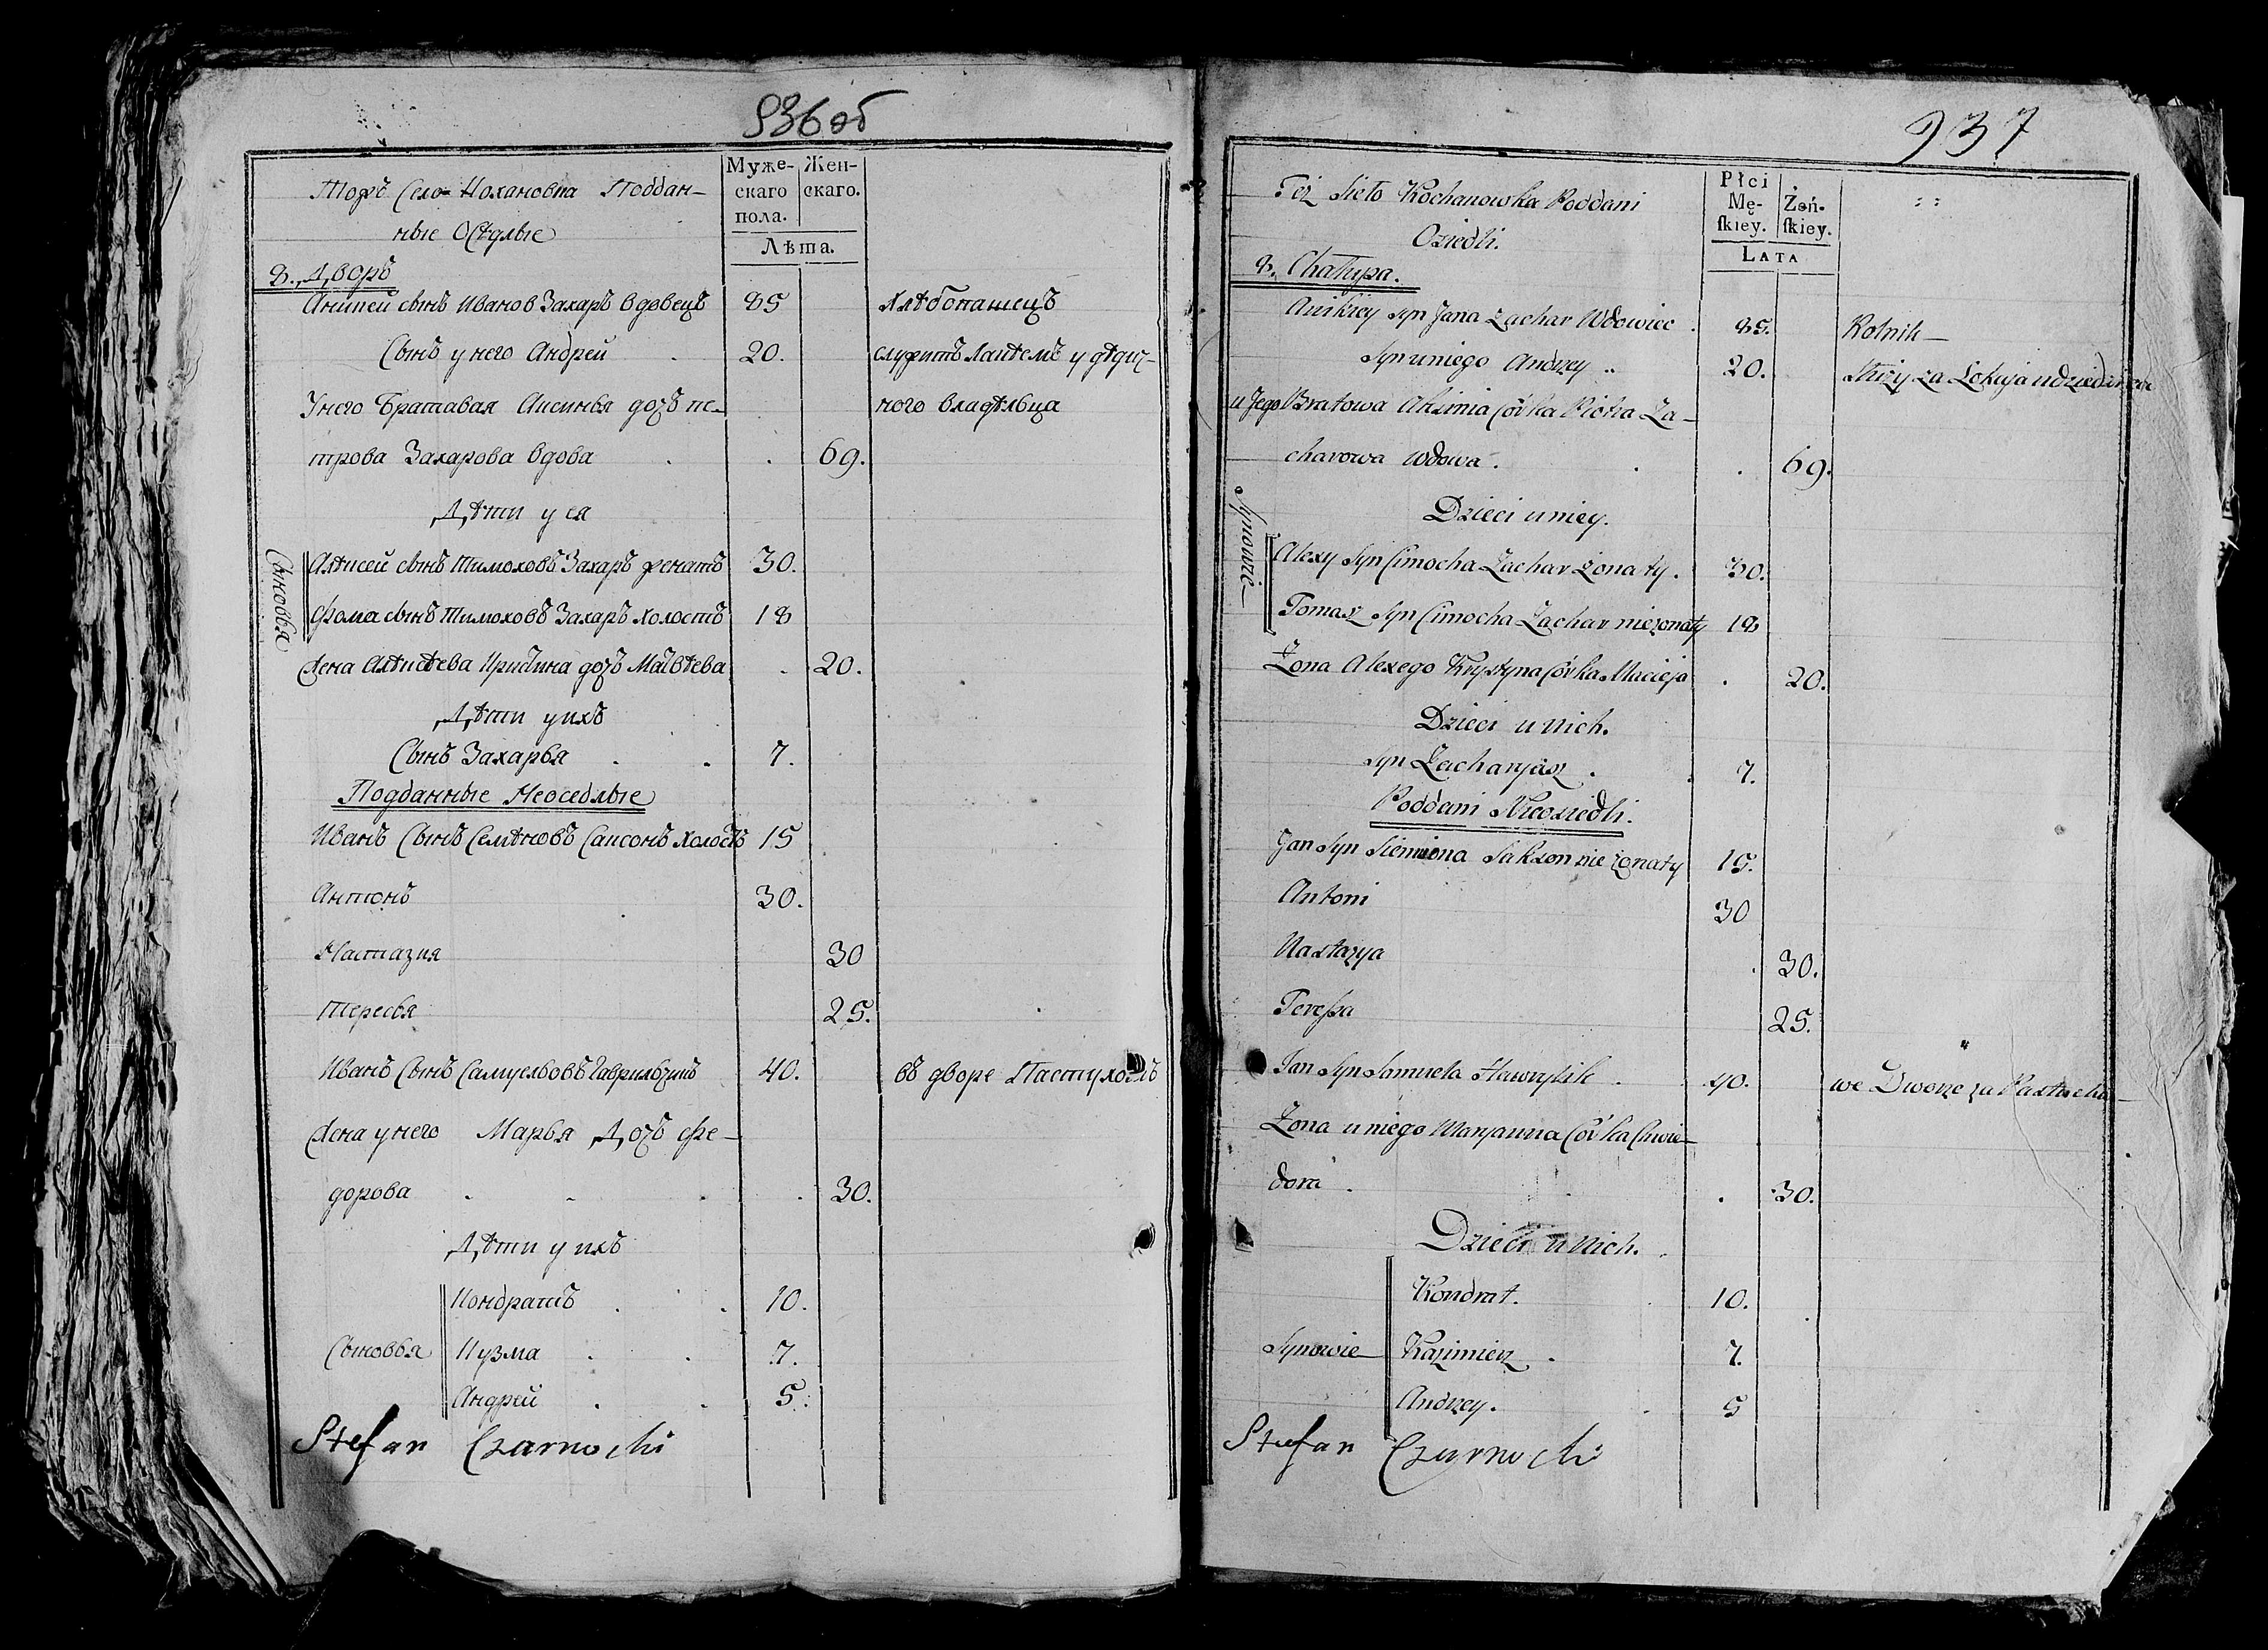 936 об
Муже- Жен-
скаго скаго.
пола.
Лѣта.
Тожъ Село Кохановка Поддан-
ные Осѣдлые
8. Дворъ
Аникей сынъ Иванов Захаръ вдовецъ 85 хлѣбопашецъ
Сынъ у него Андрей . 20. служитъ лакѣемъ у дѣдич-
У него Братавая Аксинья дочь пе- ного владѣльца
трова Захарова вдова . . 69.
Дѣти у ея
Сыновья
Алѣксей сынъ Тимоховъ Захаръ женатъ 30.
Фома сынъ Тимоховъ Захаръ холостъ 18
Жена Алѣксѣева Криштина дочь Матвѣева . 20.
Дѣти у ихъ
Сынъ Захарья . . 7.
Подданные Неоседлые
Иванъ Сынъ Семѣновъ Саксонъ холостъ 15
Антонъ 30.
Настазия 30
Тересья 25.
Иванъ Сынъ Самуельовъ Гаврильчикъ 40. въ дворе Пастухомъ
Жена у него Марья Дочь Фе-
дорова . . . . 30.
Дѣти у ихъ
Кондратъ . . 10.
Сыновья Кузма . . 7.
Андрей . . 5.
Stefan Czarnocki
937
Płci
Mę- Żeń-
skiey. skiey.
LATA
Też Sieło Kochanowka Poddani
Osiedli.
8. Chałupa.
Anikiey syn Jana Zachar Wdowiec . 85. Rolnik
Syn u niego Andrzey .. 20. Służy za Lokaja u dziedzica
u Jego Bratowa Axinia Córka Piotra Za-
charowa wdowa . . . 69.
Dzieci u niey.
Synowie
Alexy Syn Cimocha Zachar żonaty . 30.
Tomasz Syn Cimocha Zachar nieżonaty 18
Żona Alexego Krystyna Córka Macieja . 20.
Dzieci u nich.
Syn Zacharyasz . . 7.
Poddani Nieosiedli.
Jan Syn Siemiona Sakson nie żonaty 15.
Antoni 30
Nastazya . 30.
Teressa 25.
Jan Syn Samuela Hawrylik . 40. we Dworze za Pastucha
Żona u niego Maryanna Córka Chwie-
dora . . . 30.
Dzieci u nich.
Kondrat. 10.
Synowie Kazimierz . 7.
Andrzey. 5
Stefan Czarnocki